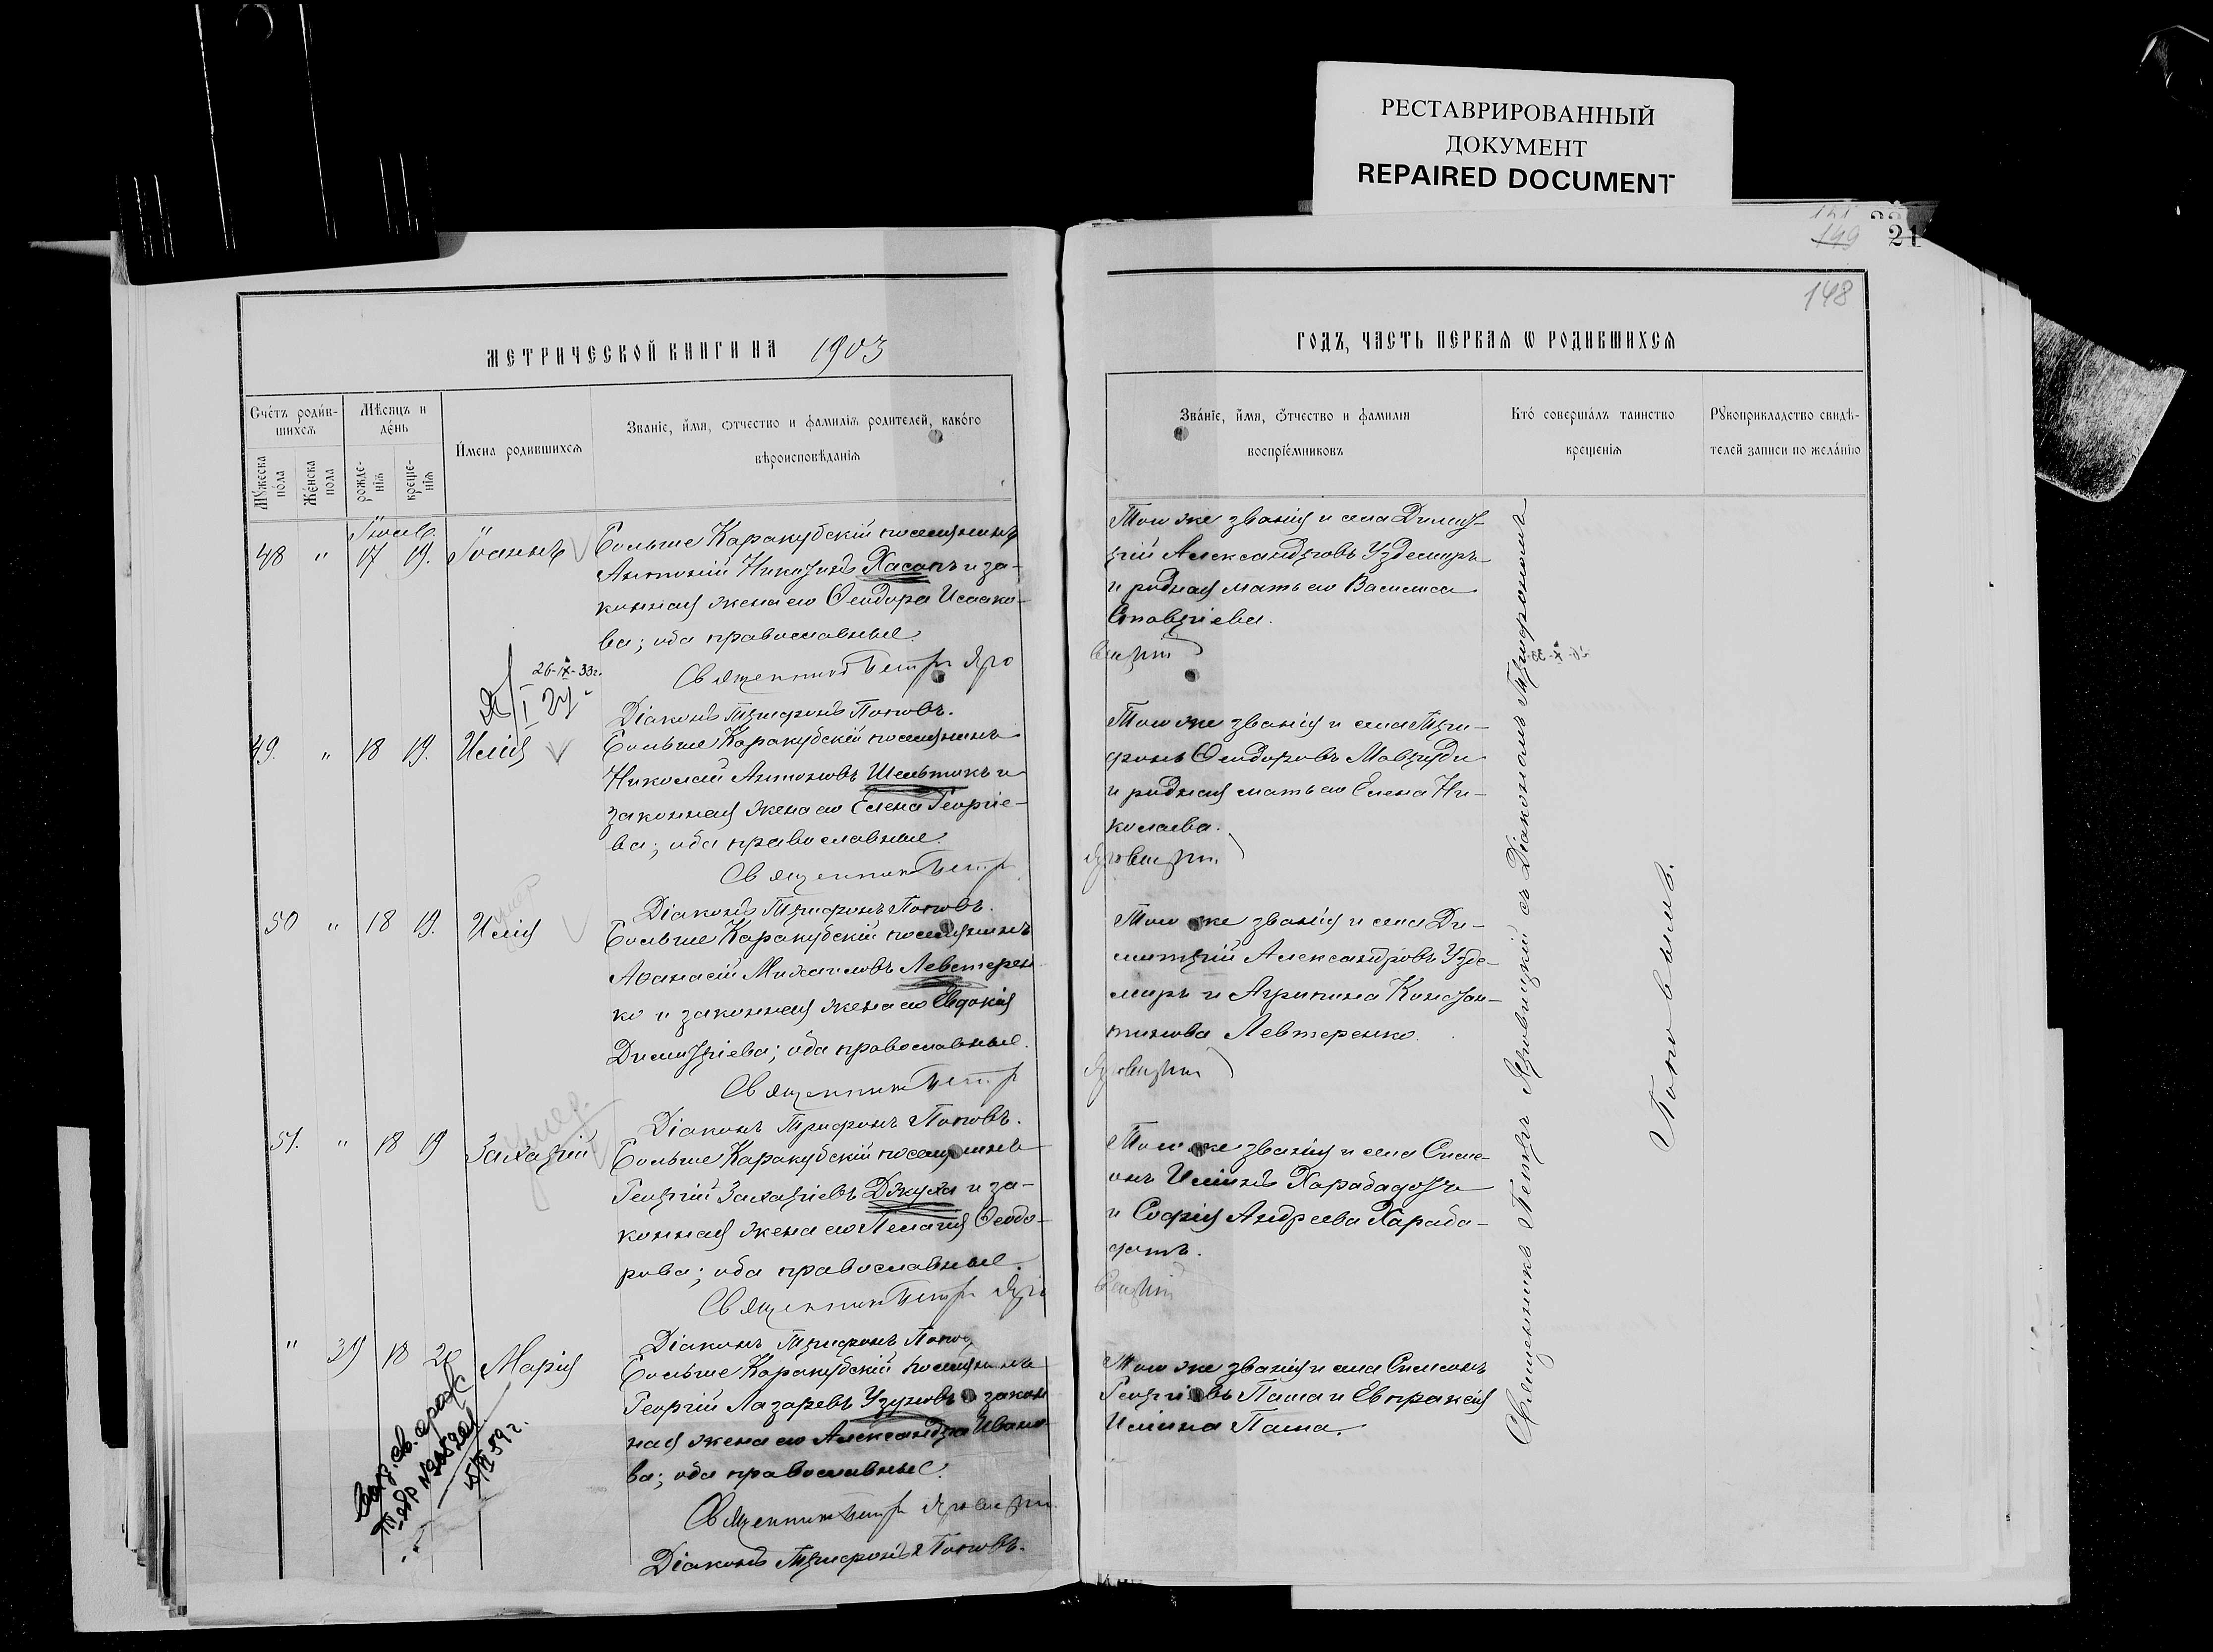 РЕСТАВРИРОВАННЫЙ
ДОКУМЕНТ
REPAIRED DOCUMENT
149
21
148
МЕТРИЧЕСКОЙ КНИГИ НА 1903
ГОДЪ, ЧАСТЬ ПЕРВАЯ Ѡ РОДИВШИХСЯ
Счетъ родив-
шихся
Мѣсяцъ и
день
Мужеска
пола
Женска
пола
рожде-
нія
креще-
нія
Имена родившихся
Званіе, имя, отчество и фамилія родителей, какого
вѣроисповѣданія
Званіе, имя, отчество и фамилія
воспріемниковъ
Кто совершалъ таинство
крещенія
Рукоприкладство свидѣ-
телей записи по желанію
48 " 17 19. Іоаннъ
Больше Каракубскій поселянинъ
Антоній Никитинъ Хасапъ и за-
конная жена его Ѳеодора Исаако-
ва; оба православные.
Священникъ Петръ Яро
Діаконъ Трифонъ Поповъ.
26-IX-33г.
Того же званія и села Димит-
рій Александровъ Уздемиръ
и родная мать его Василиса
Ставріева.
49. " 18 19. Илія
Больше Каракубскій поселянинъ
Николай Антоновъ Шелтокъ и
законная жена его Елена Георгіе-
ва; оба православные.
Священникъ Петръ
Діаконъ Трифонъ Поповъ.
Того же званія и села Три-
фонъ Ѳеодоровъ Мавроди
и родная мать его Елена Ни-
колаева.
50 " 18 19. Илія
Больше Каракубскій поселянинъ
Аѳанасій Михаиловъ Левтерен
ко и законная жена его Евдокія
Димитріева; оба православные.
Священникъ Петръ
Діаконъ Трифонъ Поповъ.
Того же званія и села Ди-
митрій АлександровъУзде-
миръ и Агрипина Констан-
тинова Левтеренко.
умер.
51. " 18 19 Захарій
Больше Каракубскій поселянинъ
Георгій Захаріевъ Джуха и за-
конная жена его Пелагія Ѳеодо-
рова; оба православные.
Священникъ Петръ Яро
Діаконъ Трифонъ Попов
Того же званія и села Симе-
онъ Иліинъ Харабадотъ
и Софія Андреева Хараба-
дотъ.
" 39 18 20 Марія
Больше Каракубскій поселянинъ
Георгій Лазаревъ Узуновъ и закон
ная жена его Александра Ивано
ва; оба православные.
Священникъ Петръ
Діаконъ Трифонъ Поповъ.
Того же званія и села Симеонъ
Георгіевъ Паша и Евпраксія
Иліина Паша.
Священникъ Петръ Яровицкій съ Діакономъ Трифономъ
Поповымъ.